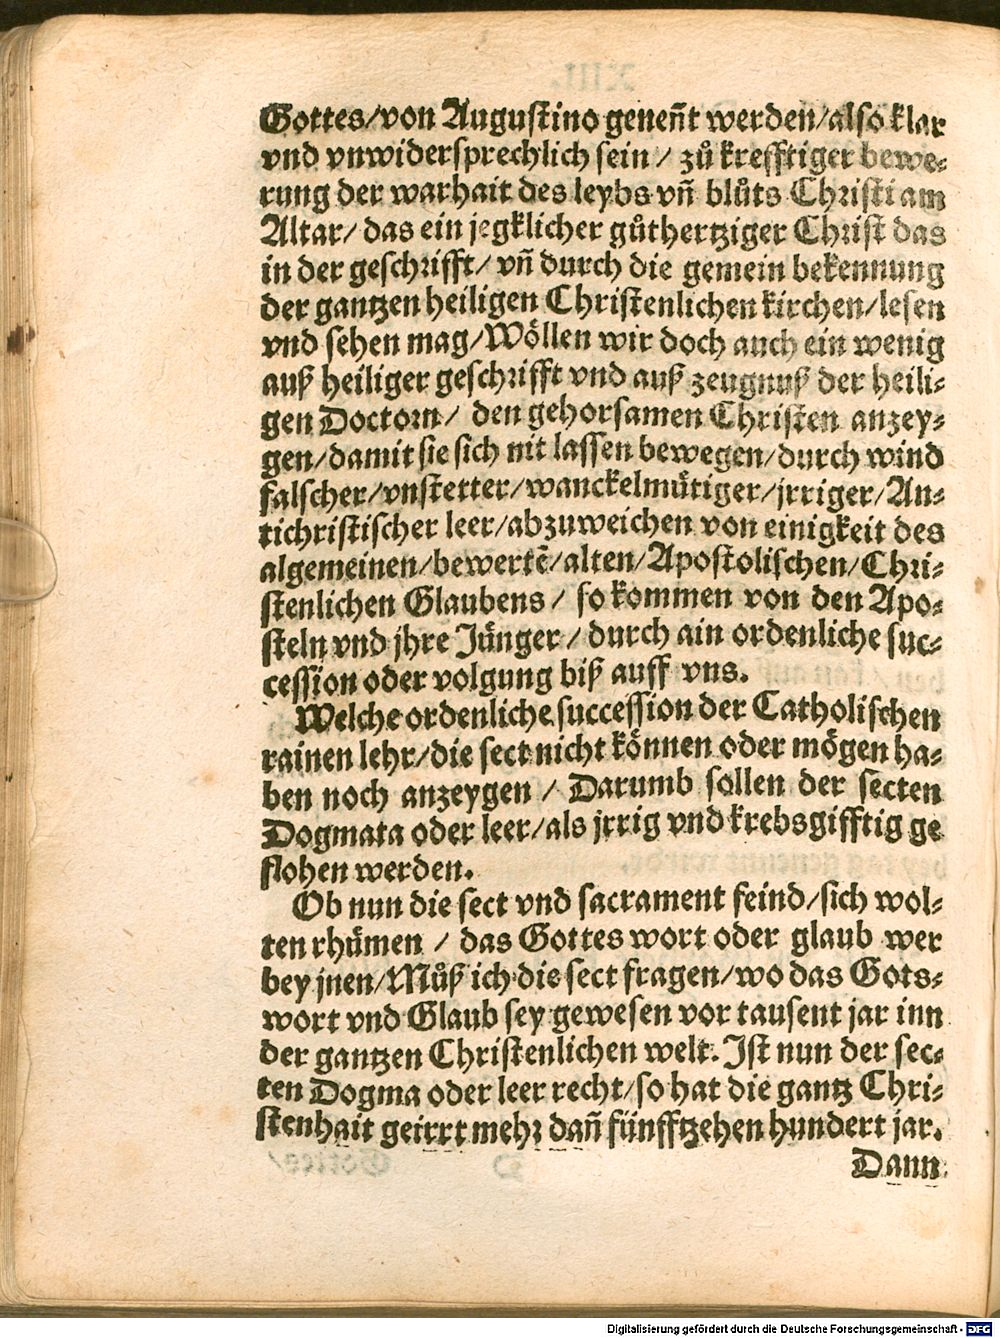 Gottes/von Augustino geneñt werden/also klar
vnd vnwidersprechlich sein/ zů krefftiger bewe⸗
rung der warhait des leybs vñ blůts Christi am
Altar/ das ein jegklicher gůthertziger Christ das
in der geschrifft/ vñ durch die gemein bekennung
der gantzen heiligen Christenlichen kirchen/lesen
vnd sehen mag/Wöllen wir doch auch ein wenig
auß heiliger geschrifft vnd auß zeugnuß der heili⸗
gen Doctorn/ den gehorsamen Christen anzey⸗
gen/damit sie sich nit lassen bewegen/durch wind
falscher/vnstetter/wanckelmůtiger/jrriger/An⸗
tichristischer leer/abzuweichen von einigkeit des
algemeinen/bewertē/alten/Apostolischen/Chri⸗
stenlichen Glaubens/ so kommen von den Apo⸗
steln vnd jhre Jünger/durch ain ordenliche suc⸗
cession oder volgung biß auff vns.
Welche ordenliche succession der Catholischen
rainen lehr/die sect nicht können oder mögen ha⸗
ben noch anzeygen/ Darumb sollen der secten
Dogmata oder leer/als jrrig vnd krebsgifftig ge
flohen werden.
Ob nun die sect vnd sacrament feind/sich wol⸗
ten rhümen / das Gottes wort oder glaub wer
bey jnen/Můß ich die sect fragen/wo das Gots⸗
wort vnd Glaub sey gewesen vor tausent jar inn
der gantzen Christenlichen welt. Ist nun der sec⸗
ten Dogma oder leer recht/so hat die gantz Chri⸗
stenhait geirrt mehr dañ fünfftzehen hundert jar.
Dann
Digitalisierung gefördert durch die Deutsche Forschungsgemeinschaft - DFG